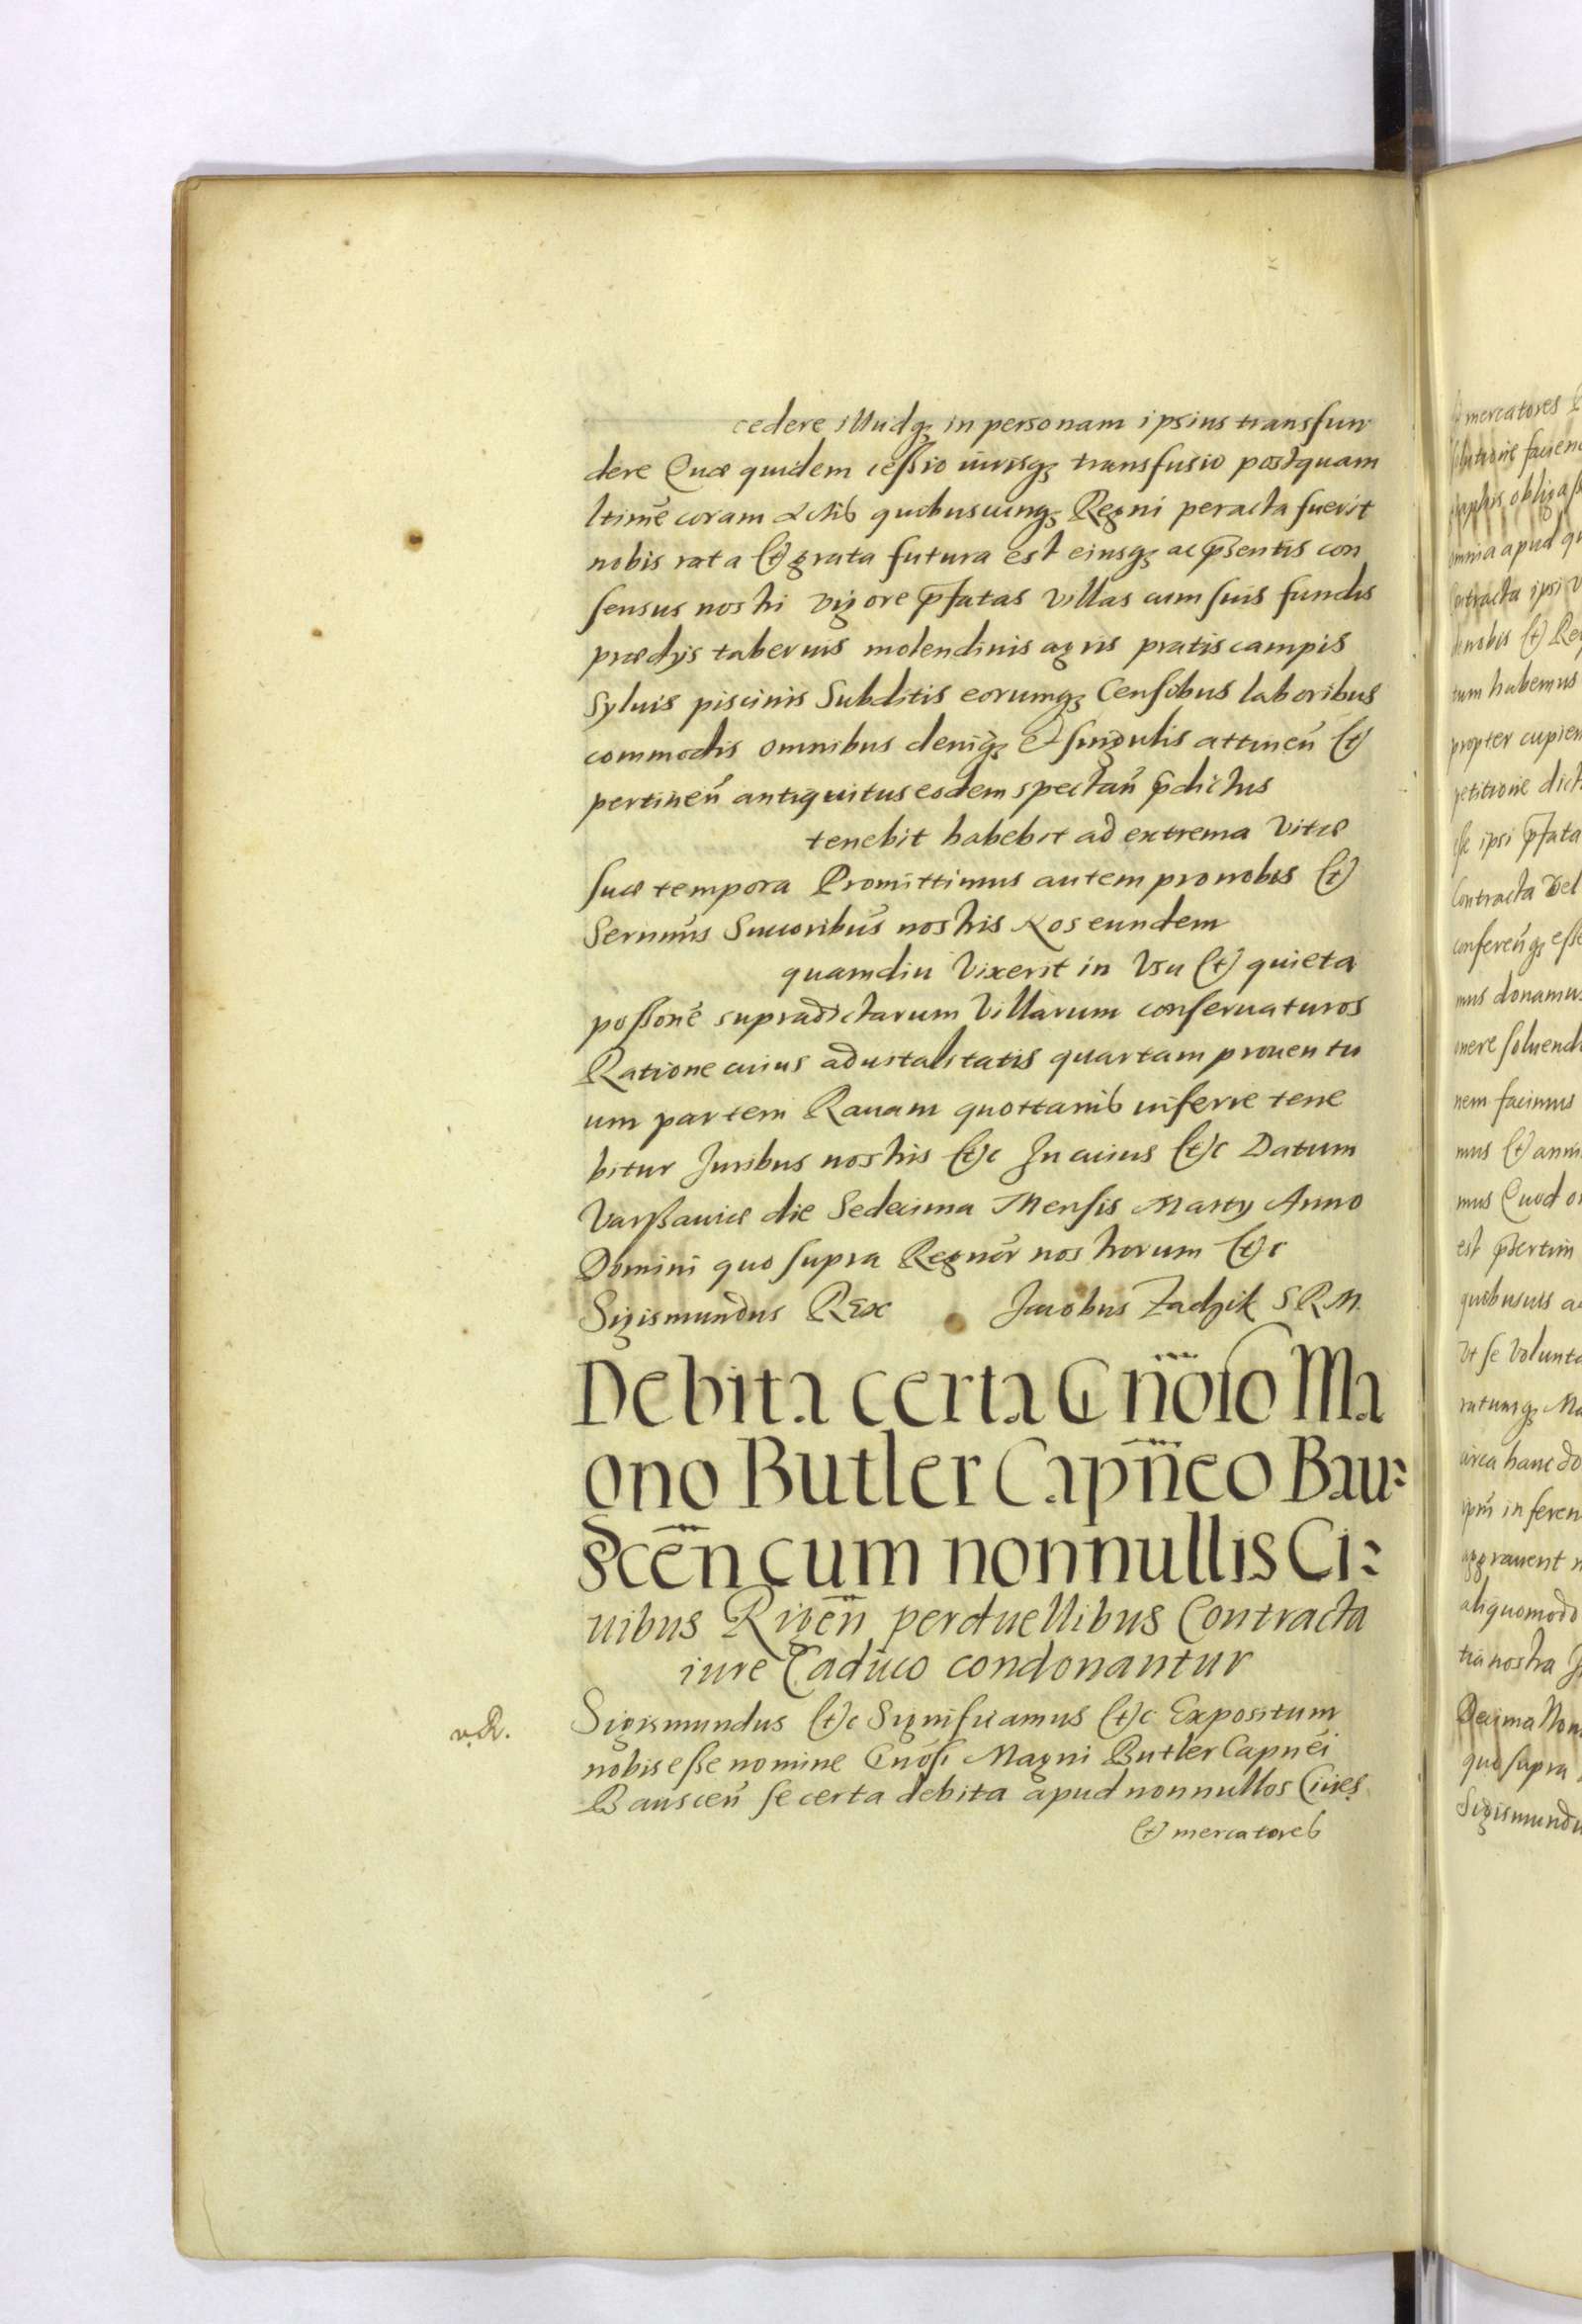 cedere illudq₃ in personam ipsius transfun
dere Quæ quidem ceßio iurisq₃ transfusio postquam
ltimē coram Actib quibuscunq₃ Regni peracta fuerit
nobis rata (et) grata futura est eiusq₃ ac p̄sentis con
sensus nostri vigore p̄fatas villas cum suis fundis
prædijs tabernis molendinis agris pratis campis
Syluis piscinis Subditis eorumq₃ Censibus laboribus
commodis omnibus deniq₃ et singulis attineñ (et)
pertineñ antiquitus eodem spectañ p̄dictus
tenebit habebit ad extrema vitæ
suæ tempora Promittimus autem pro nobis (et)
Sernmis Succoribus nostris Nos eundem
quamdiu vixerit in Vsu (et) quieta
poßone supradictarum Villarum conseruaturos
Ratione cuius aduitalitatis quartam prouentu
um partem Rauam quottanib inferre tene
bitur Juribus nostris (et)c In cuius (et)c Datum
Varßauiæ die Sedecima Mensis Martij Anno
Domini quo supra Regnor nostrorum (et)c
Sigismundus Rex Jacobus Zadzik S R M.
Debita certa Gn̄oso Ma
gno Butler Capn̄eo Bau:
scen̄ cum nonnullis Ci:
uibus Rigen̄ perduellibus Contracta
iure Caduco condonantur
v.R.
Sigismundus (et)c Significamus (et)c Expositum
nobis esse nomine Gnosi Magni Butler Capnei
Bausceñ se certa debita apud nonnullos Ciues
(et) mercatoreb
mercatores
obligaß
omnia apud qu
contracta ipsi v
nobis (et) Re
tum habemus
propter cupien
petitione dict
ipsi p̄fata
Contracta vel
conferen̄q₃ esse
mus donamus
onere soluendi
nem facimus
mus (et) anni
mus Quod o
est p̄sertim
quibusuis a
Vt se volunta
Ma
circa hanc do
ipm̄ inferen
aggrauent n
aliquomodo
tia nostra J
Decima Non
quo supra
Sigismundu